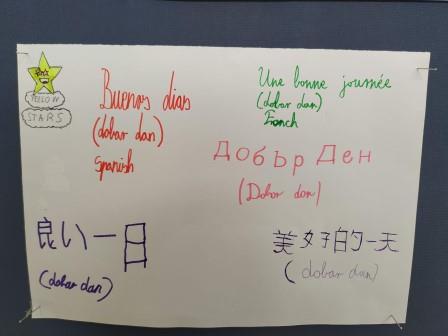 YELLOW
STARS
Buenos dias
(dobar dan)
Spanish
Une bonne journée
(dobar dan)
French
Добър Ден
(Dobar dan)
良い一日
(dobar dan)
美好的一天
(dobar dan)